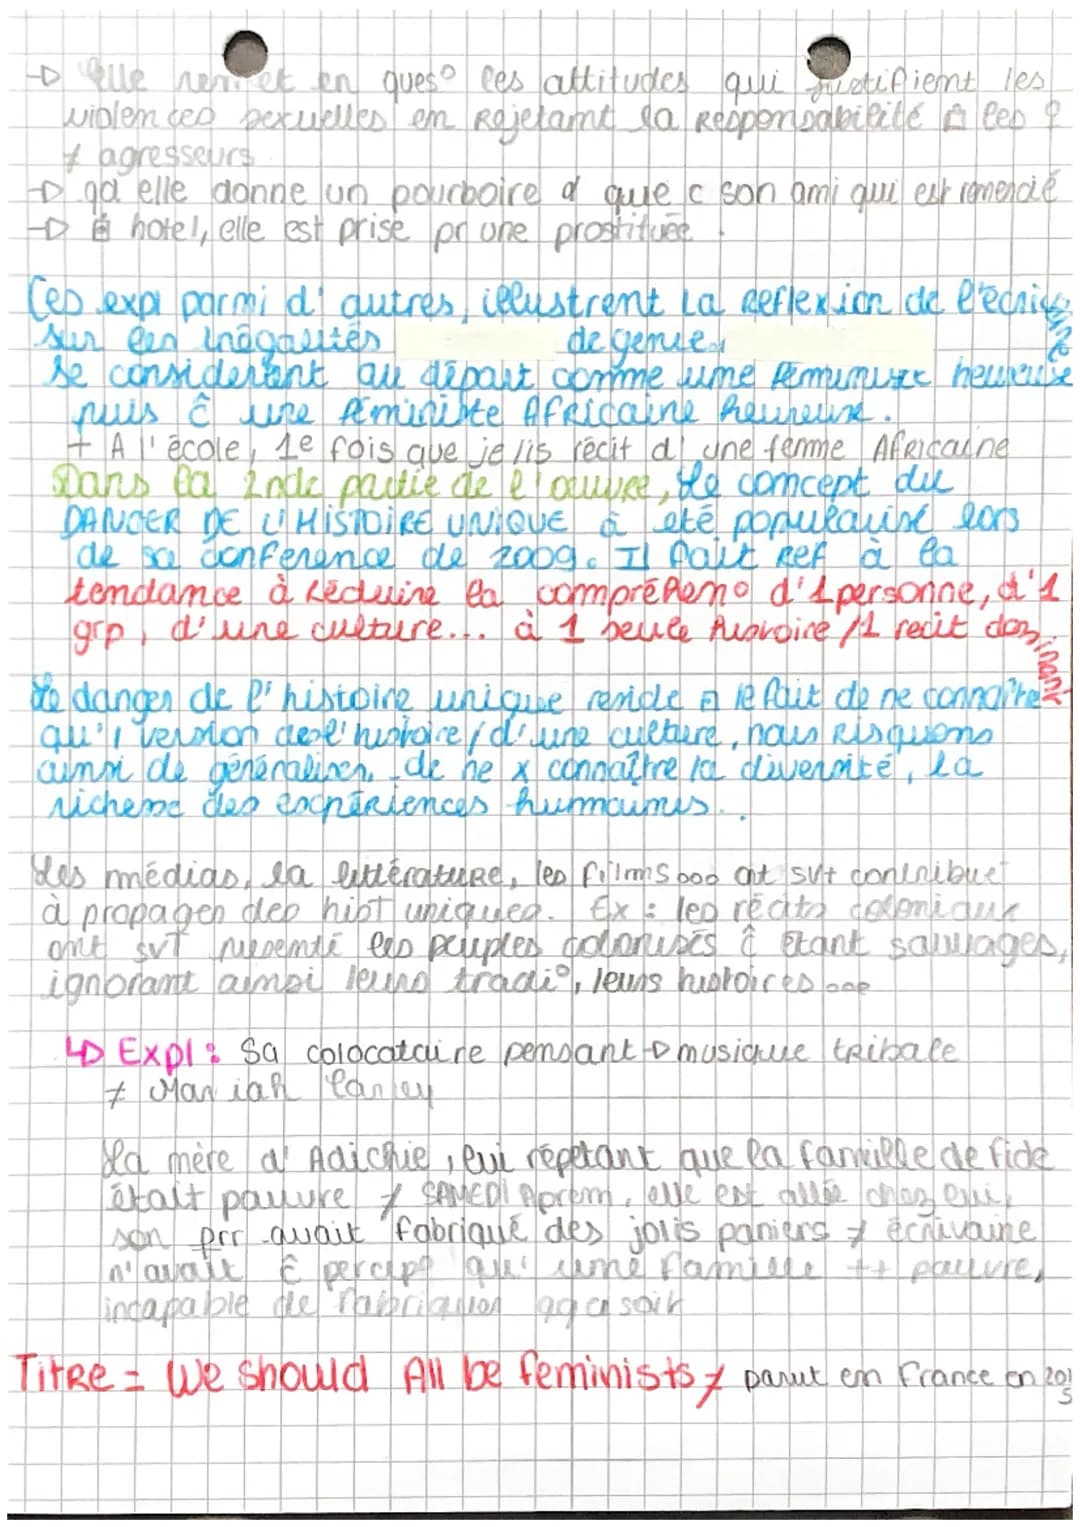 → Elle remet en ques° les attitudes qui justifient les
violences sexuelles en Rejetant la Responsabilité à les ♀
≠ agresseurs
→ qd elle donne un pourboire d que c son ami qui est remercié
→ à hotel, elle est prise pr une prostituée.
Ces expl parmi d'autres, illustrent la reflexion de l'écrivaine
sur les inégalités de genre,
se considérant au départ comme une féministe heureuse
puis ĉ une féministe Africaine heureuse.
+ A l'école, 1e fois que je lis récit d'une femme Africaine
Dans la 2nde partie de l'œuvre, Le concept du
DANGER DE L'HISTOIRE UNIQUE a été popularisé lors
de sa conférence de 2009. Il fait Ref à la
tendance à Réduire la compréhen° d'1 personne, d'1
grp, d'une culture... à 1 seule histoire /1 récit dominant
Le danger de l'histoire unique reside à le fait de ne connaître
qu'1 version de l'histoire / d'une culture, nous Risquons
ainsi de généraliser, de ne x connaître la diversité, la
richesse des expériences humaines..
Les médias, la littérature, les films ooo ont svt contribué
à propager des hist uniques. Ex : les récits coloniaux
ont svt représenté les peuples colonisés ĉ étant sauvages,
ignorant ainsi leurs tradi°, leurs histoires ooo
↳ Expl : Sa colocataire pensant → musique tribale
≠ Mariah Carey
La mère d'Adichie, lui répétant que la famille de Fide
était pauvre ≠ SAMEDI Aprem, elle est allée chez lui,
son frr avait fabriqué des jolis paniers ≠ écrivaine
n'avait ĉ percep° qu'une famille ++ pauvre,
incapable de fabrication qq ch soit
Titre = We should All be feminists ≠ parut en France en 2015